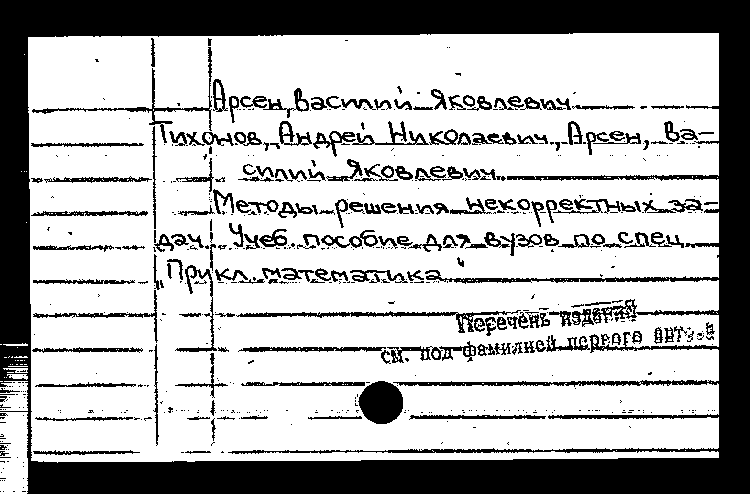 Арсен, Василий Яковлевич
Тихонов, Андрей Николаевич, Арсен, Ва-
силий Яковлевич
Методы решения некорректных за-
дач. Учеб. пособие для вузов по спец.
„Прикл. математика"
Перечень изданий
см. под фамилией первого автора